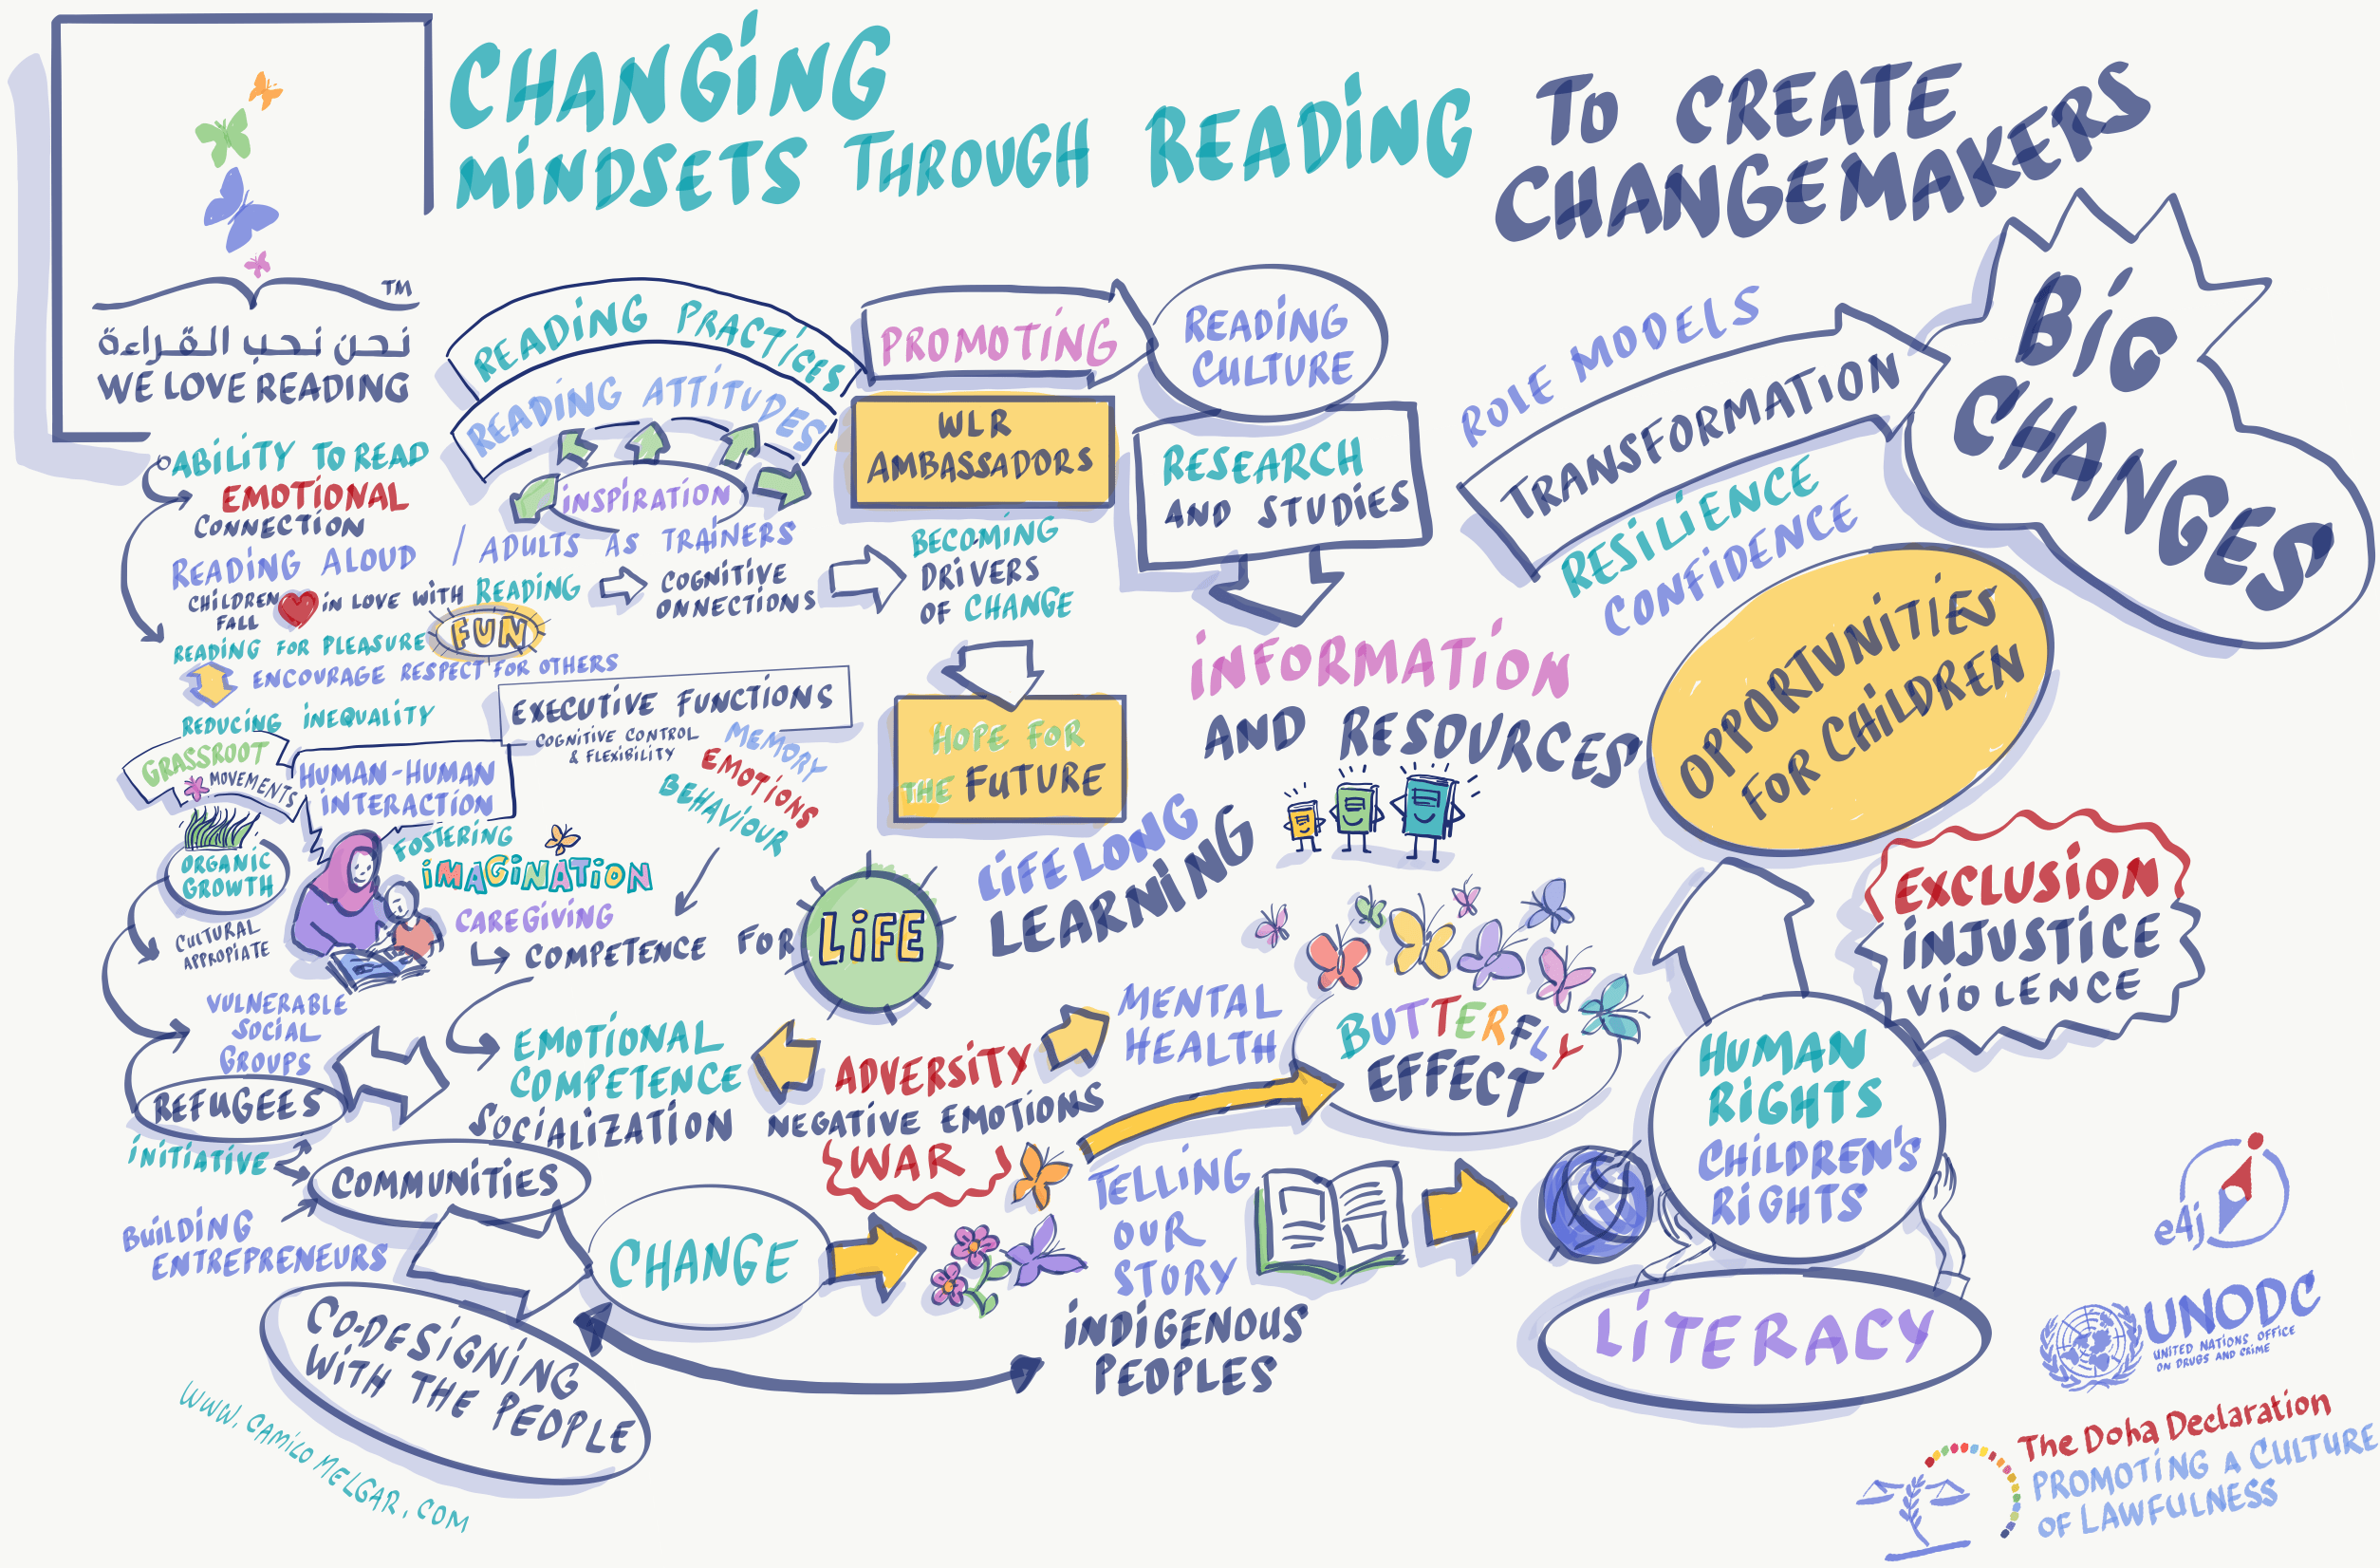 CHANGING
MINDSETS THROUGH READING
TO CREATE
CHANGEMAKERS
TM
نحن نحب القراءة
WE LOVE READING
READING PRACTICES
READING ATTITUDES
INSPIRATION
PROMOTING
READING
CULTURE
WLR
AMBASSADORS
RESEARCH
AND STUDIES
ROLE MODELS
TRANSFORMATION
RESILIENCE
CONFIDENCE
BIG
CHANGES
ABILITY TO READ
EMOTIONAL
CONNECTION
READING ALOUD / ADULTS AS TRAINERS
CHILDREN
FALL
IN LOVE WITH READING
COGNITIVE
ONNECTIONS
BECOMING
DRIVERS
OF CHANGE
READING FOR PLEASURE
FUN
ENCOURAGE RESPECT FOR OTHERS
REDUCING INEQUALITY
EXECUTIVE FUNCTIONS
COGNITIVE CONTROL
& FLEXIBILITY
MEMORY
EMOTIONS
BEHAVIOUR
HOPE FOR
THE FUTURE
INFORMATION
AND RESOURCES
OPPORTUNITIES
FOR CHILDREN
GRASSROOT
MOVEMENTS
HUMAN-HUMAN
INTERACTION
FOSTERING
IMAGINATION
CAREGIVING
COMPETENCE FOR
LIFE
LIFELONG
LEARNING
ORGANIC
GROWTH
CULTURAL
APPROPIATE
VULNERABLE
SOCIAL
GROUPS
REFUGEES
INITIATIVE
COMMUNITIES
BUILDING
ENTREPRENEURS
EMOTIONAL
COMPETENCE
SOCIALIZATION
ADVERSITY
NEGATIVE EMOTIONS
WAR
MENTAL
HEALTH
BUTTERFLY
EFFECT
EXCLUSION
INJUSTICE
VIOLENCE
HUMAN
RIGHTS
CHILDREN'S
RIGHTS
LITERACY
CHANGE
TELLING
OUR
STORY
INDIGENOUS
PEOPLES
CO-DESIGNING
WITH THE PEOPLE
WWW.CAMILOMELGAR.COM
e4j
UNODC
UNITED NATIONS OFFICE
ON DRUGS AND CRIME
The Doha Declaration
PROMOTING A CULTURE
OF LAWFULNESS